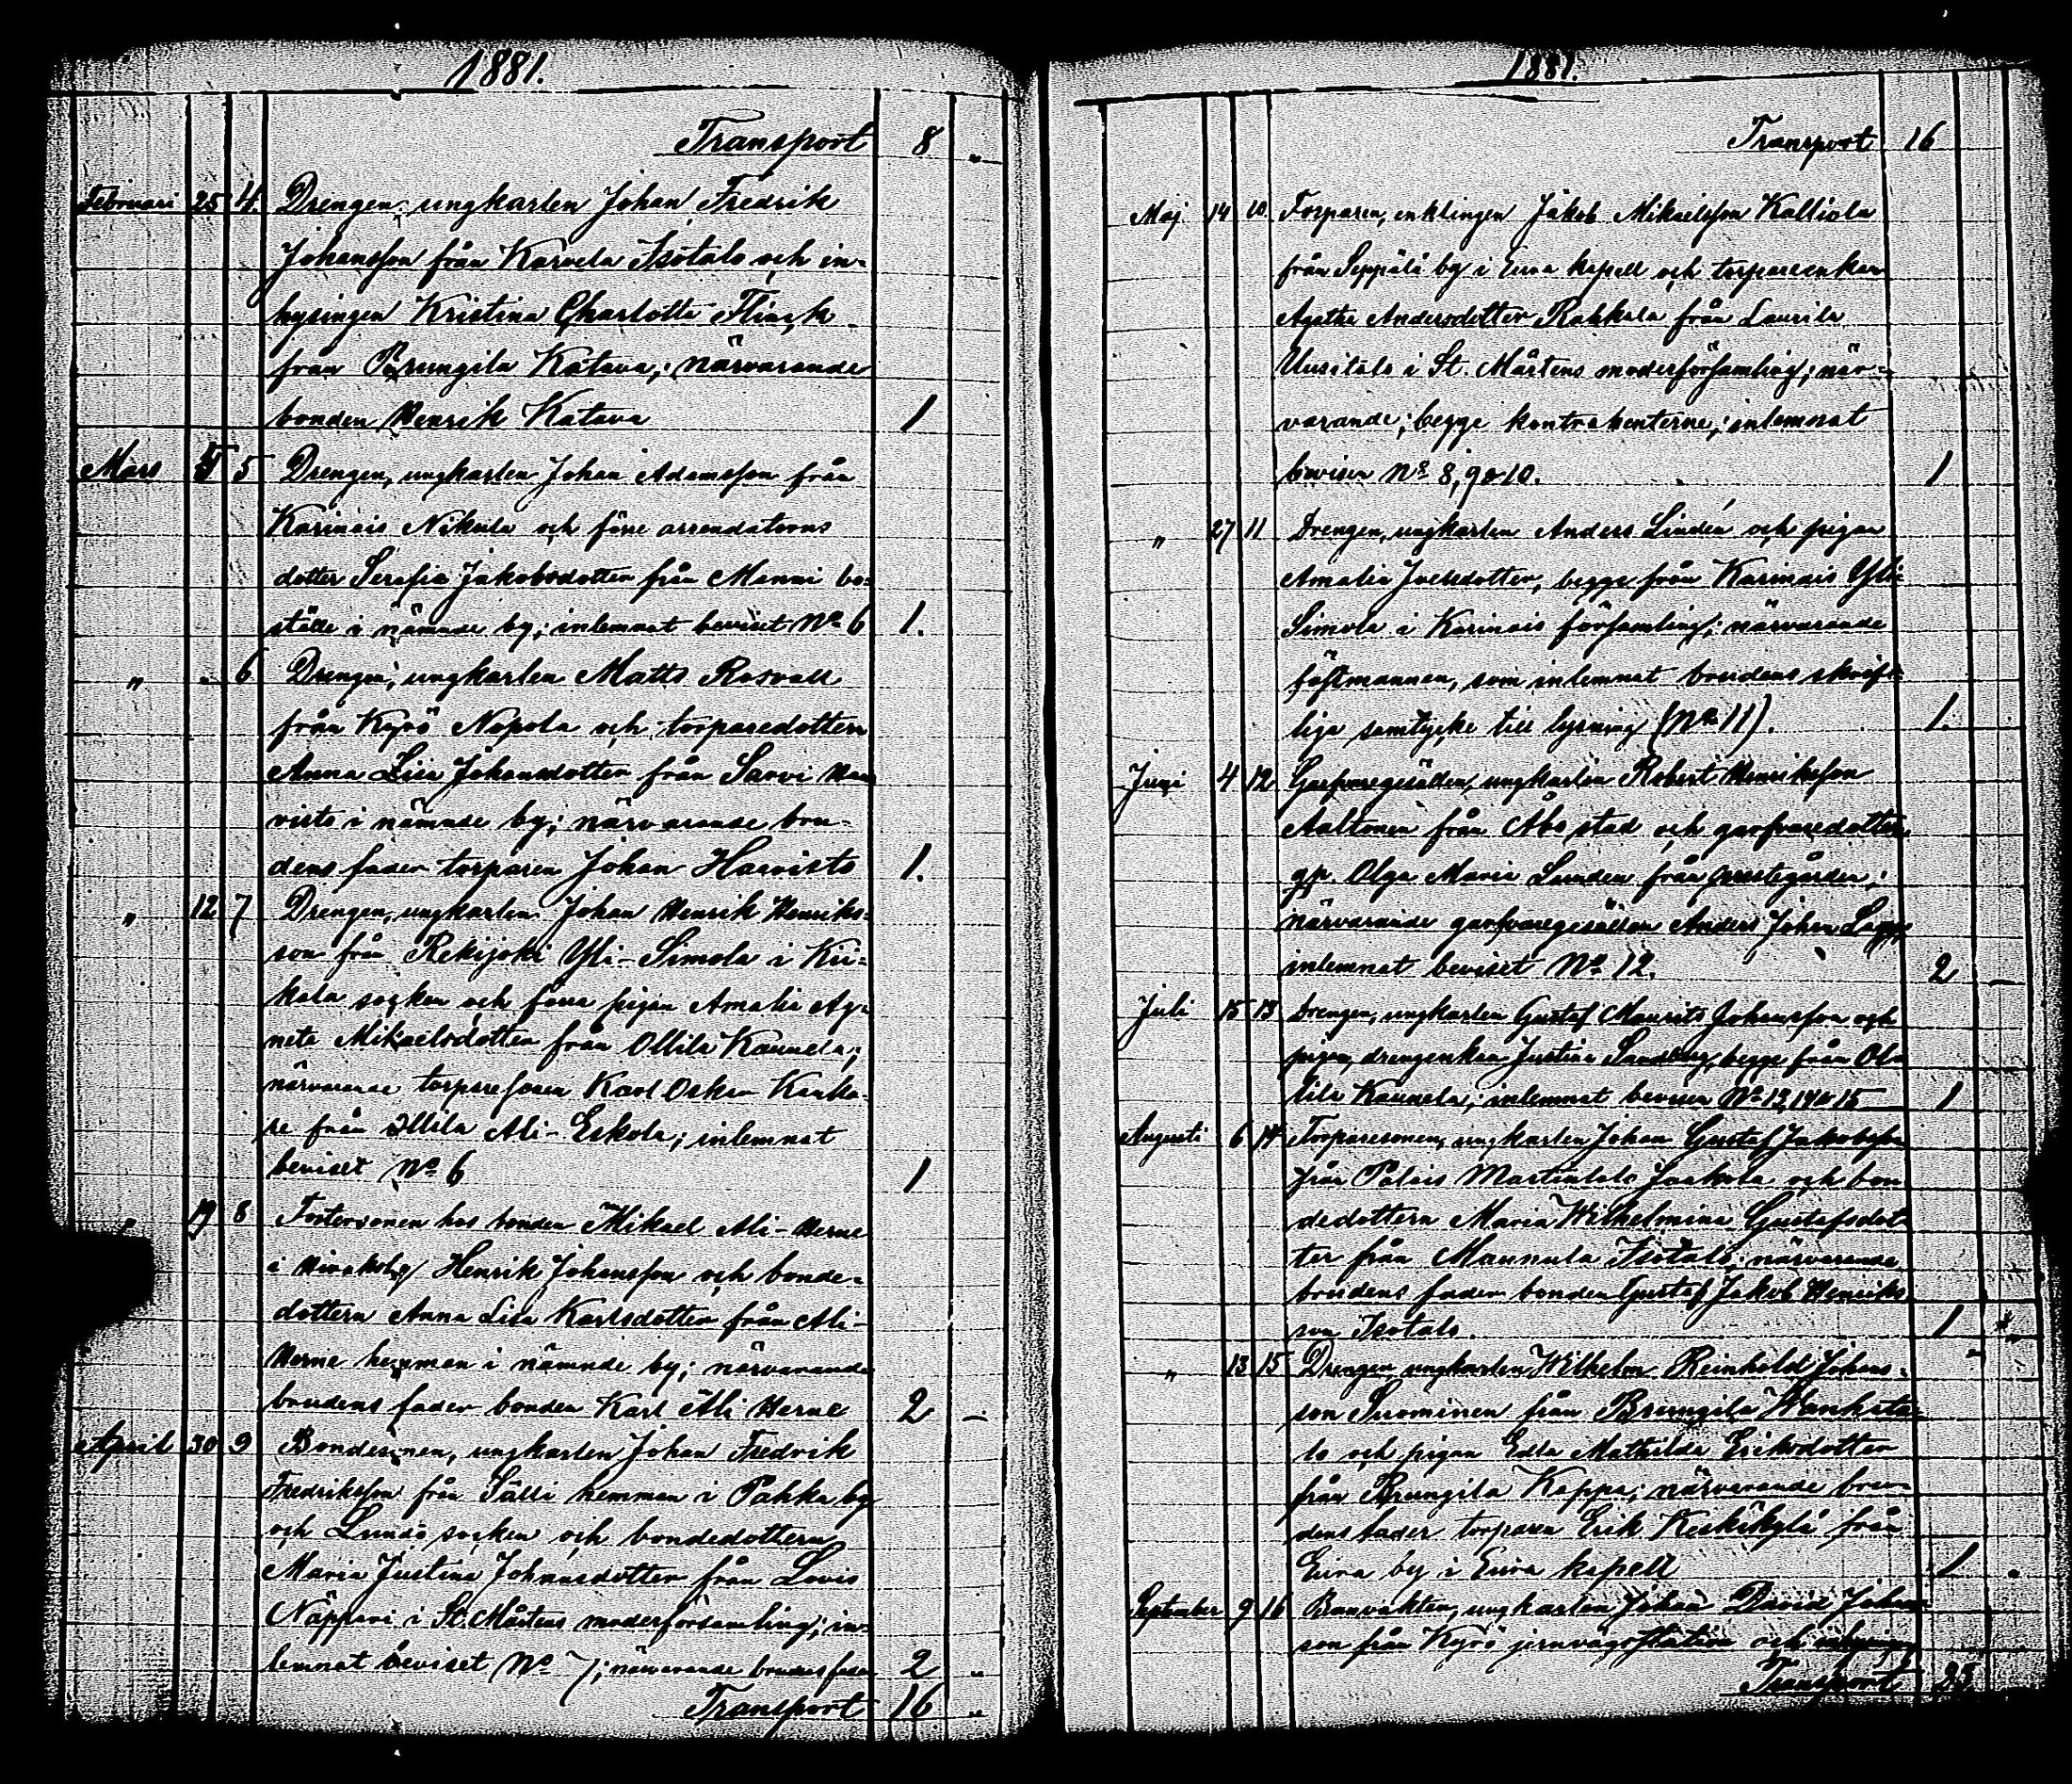 1881.
Transport 8 „
Februari 25 4. Drengen, ungkarlen Johan Fredrik
Johansson från Karvela Isotalo och in-
hysingen Kristina Charlotta Flinck
från Prungila Katava; närvarande
bonden Henrik Katava 1
Mars 5 5 Drengen, ungkarlen Johan Adamsson från
Karinais Nikula och förre arrendatorns
dotter Serafia Jakobsdotter från Manni bo-
ställe i nämnde by; inlemnat beviset No 6 1.
„ „ 6 Drengen, ungkarlen Matts Rosvall
från Kyrö Nopola och torparedottern
Anna Lisa Johansdotter från Sarvi Haa
visto i nämnde by; närvarande bru-
dens fader torparen Johan Haavisto 1.
„ 12 7 Drengen, ungkarlen Johan Henrik Henriks-
son från Rekijoki Yli-Simola i Kii-
kala socken och förra pigan Amalia Ag-
neta Mikaelsdotter från Ollila Kaunela;
närvarande torparesonen Karl Oskar Kanka-
re från Ollila Ali-Eskola; inlemnat
beviset No 6 1
„ 19 8 Fostersonen hos bonden Mikael Ali-Herne
i by Henrik Johansson och bonde-
dottern Anna Lisa Karlsdotter från Ali-
Herne hemman i nämnde by; närvarande
brudens fader bonden Karl Ali Herne 2 –
April 30 9 Bondesonen, ungkarlen Johan Fredrik
Fredriksson från Sälli hemman i Pahka by
och Lundo socken och bondedottern
Maria Justina Johansdotter från Lovis
Näppari i St. Mårtens moderförsamling; in-
lemnat beviset No 7; närvarande brudens fader 2 „
Transport 16 „
1881.
Transport 16
Maj 14 10 Torparen, enklingen Jakob Mikaelsson Kalliola
från Seppälä by i Eura kapell och torpareenkan
Agatha Andersdotter Rahkala från Laurila
Uusitalo i St. Mårtens moderförsamling; när-
varande; begge kontrahenterne; inlemnat
bevisen No 8, 9 o 10. 1
„ 27 11 Drengen, ungkarlen Anders Lindén och pigan
Amalia Joelsdotter, begge från Karinais Yli-
Simola i Karinais församling; närvarande
fästmannen, som inlemnat brudens skrift-
liga samtycke till lysning (No 11). 1.
Juni 4 12 Garfvaregesällen, ungkarlen Robert Henriksson
Aaltonen från Åbo stad och garfvaredottern
gp. Olga Maria Lunden från prestegården;
närvarande garfvaregesällen Anders Johan
inlemnat beviset No 12. 2 –
Juli 15 13 Drengen, ungkarlen Gustaf Maurits Johansson och
pigan, drengenkan Justina Sandberg, begge från Ol-
lila Kaunela; inlemnat bevisen No 13, 14 o 15 1
Augusti 6 14 Torparesonen, ungkarlen Johan Gustaf Jakobsson
från Palais Martintalo Jaakola och bon
dedottern Maria Wilhelmina Gustafsdot
ter från Maunula Isotalo; närvarande
brudens fader bonden Gustaf Jakob Henriks
son Isotalo. 1 „
„ 13 15 Drengen, ungkarlen Wilhelm Reinhold Johans-
son Suominen från Brungila Wanhata-
lo och pigan Edla Mathilda Eriksdotter
från Prungila Kappa; närvarande bru-
dens fader torparen Erik Keskikylä från
Eura by i Eura kapell 1 .
September 9 16 Banvakten, ungkarlen Johan David Johans
son från Kyrö jernvägsstation och inhysing
Transport 23